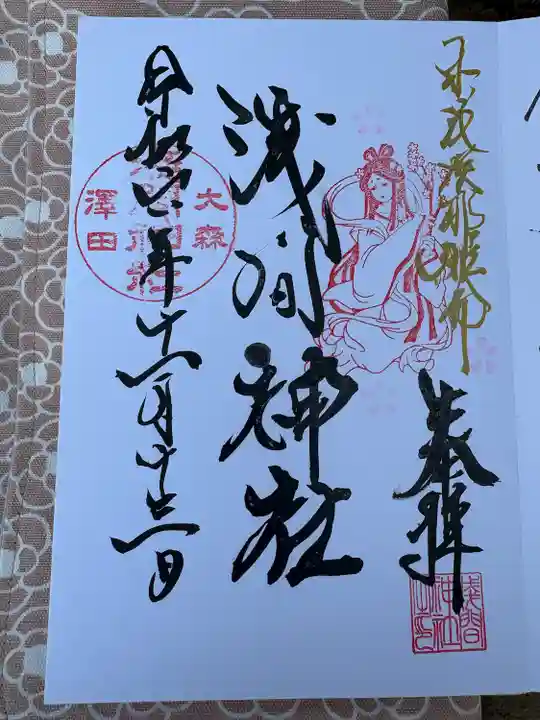 木花咲耶姫命
奉拝
浅間神社
浅間神社之印
大森
浅間神社
澤田
令和四年十一月十三日